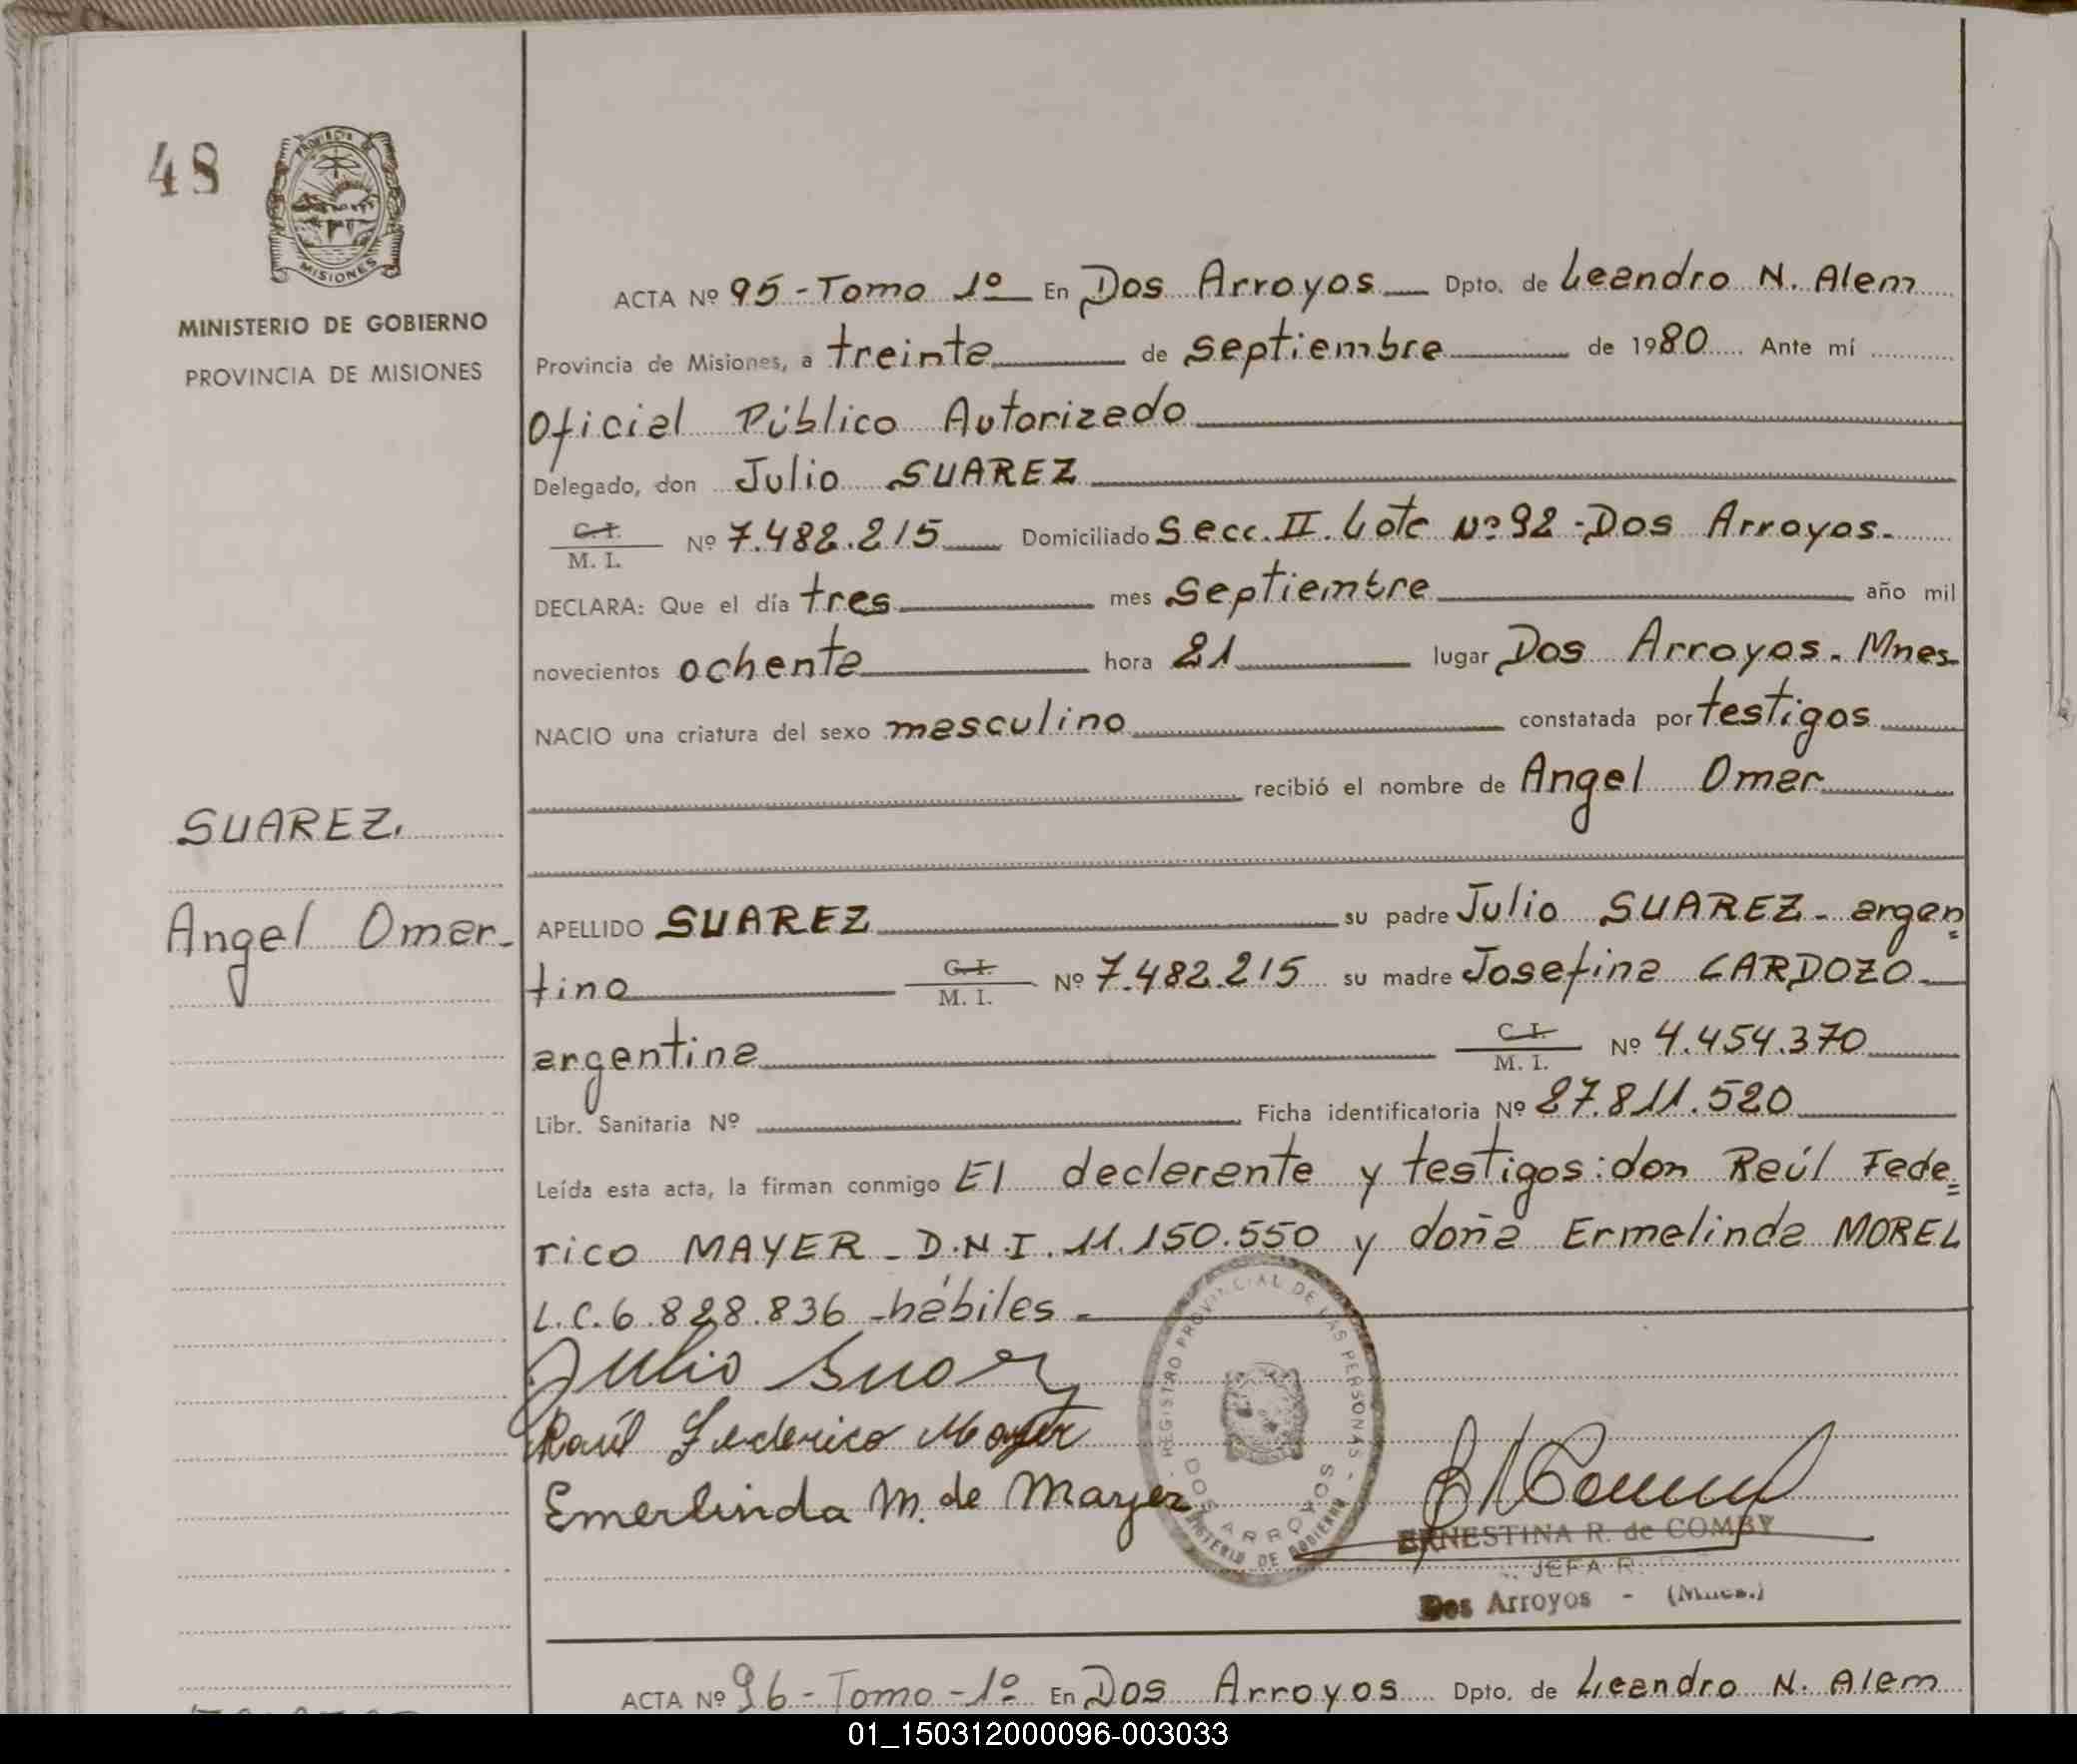 48
PROVINCIA DE
MISIONES
MINISTERIO DE GOBIERNO
PROVINCIA DE MISIONES
ACTA Nº 95 - Tomo 1º En Dos Arroyos Dpto. de Leandro N. Alem
Provincia de Misiones, a treinta de septiembre de 1980 Ante mí
Oficial Público Autorizado
Delegado, don Julio SUAREZ
C. I.
M. I. Nº 7.482.215 Domiciliado Secc. II. Lote Nº 92 - Dos Arroyos.
DECLARA: Que el día tres mes septiembre año mil
novecientos ochenta hora 21 lugar Dos Arroyos. Mnes
NACIO una criatura del sexo masculino constatada por testigos
recibió el nombre de Angel Omar
SUAREZ.
Angel Omar.
APELLIDO SUAREZ su padre Julio SUAREZ - argen=
tino C. I.
M. I. Nº 7.482.215 su madre Josefina CARDOZO
argentina C. I.
M. I. Nº 4.454.370
Libr. Sanitaria Nº Ficha identificatoria Nº 27.811.520
Leída esta acta, la firman conmigo El declarante y testigos: don Raúl Fede=
rico MAYER - D.N.I. 11.150.550 y doña Ermelinda MOREL
L.C. 6.828.836 - hábiles -
Julio Suarez
Raúl Federico Mayer
Emerlinda M. de Mayer
REGISTRO PROVINCIAL DE LAS PERSONAS
DOS ARROYOS
MINISTERIO DE GOBIERNO
ERNESTINA R. de COMBY
JEFA R.
Dos Arroyos - (Mnes.)
ACTA Nº 96 - Tomo - 1º En Dos Arroyos Dpto. de Leandro N. Alem
01_150312000096-003033